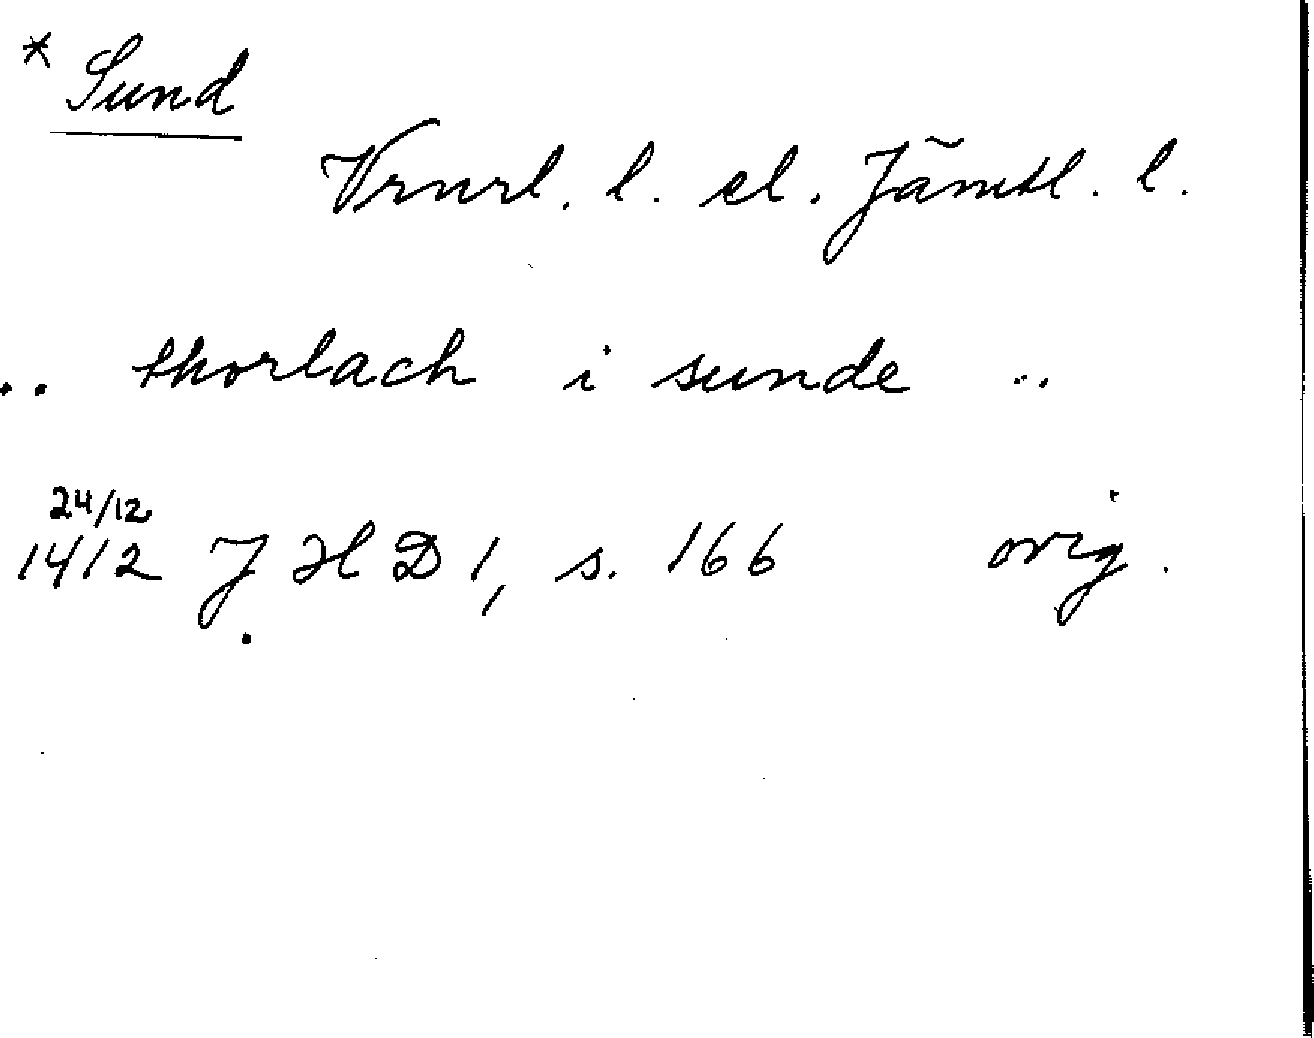 * Sund
Vrnrl. l. el. Jämtl. l.
.. thorlach i sunde ..
24/12
1412 J H D 1, s. 166 orig.